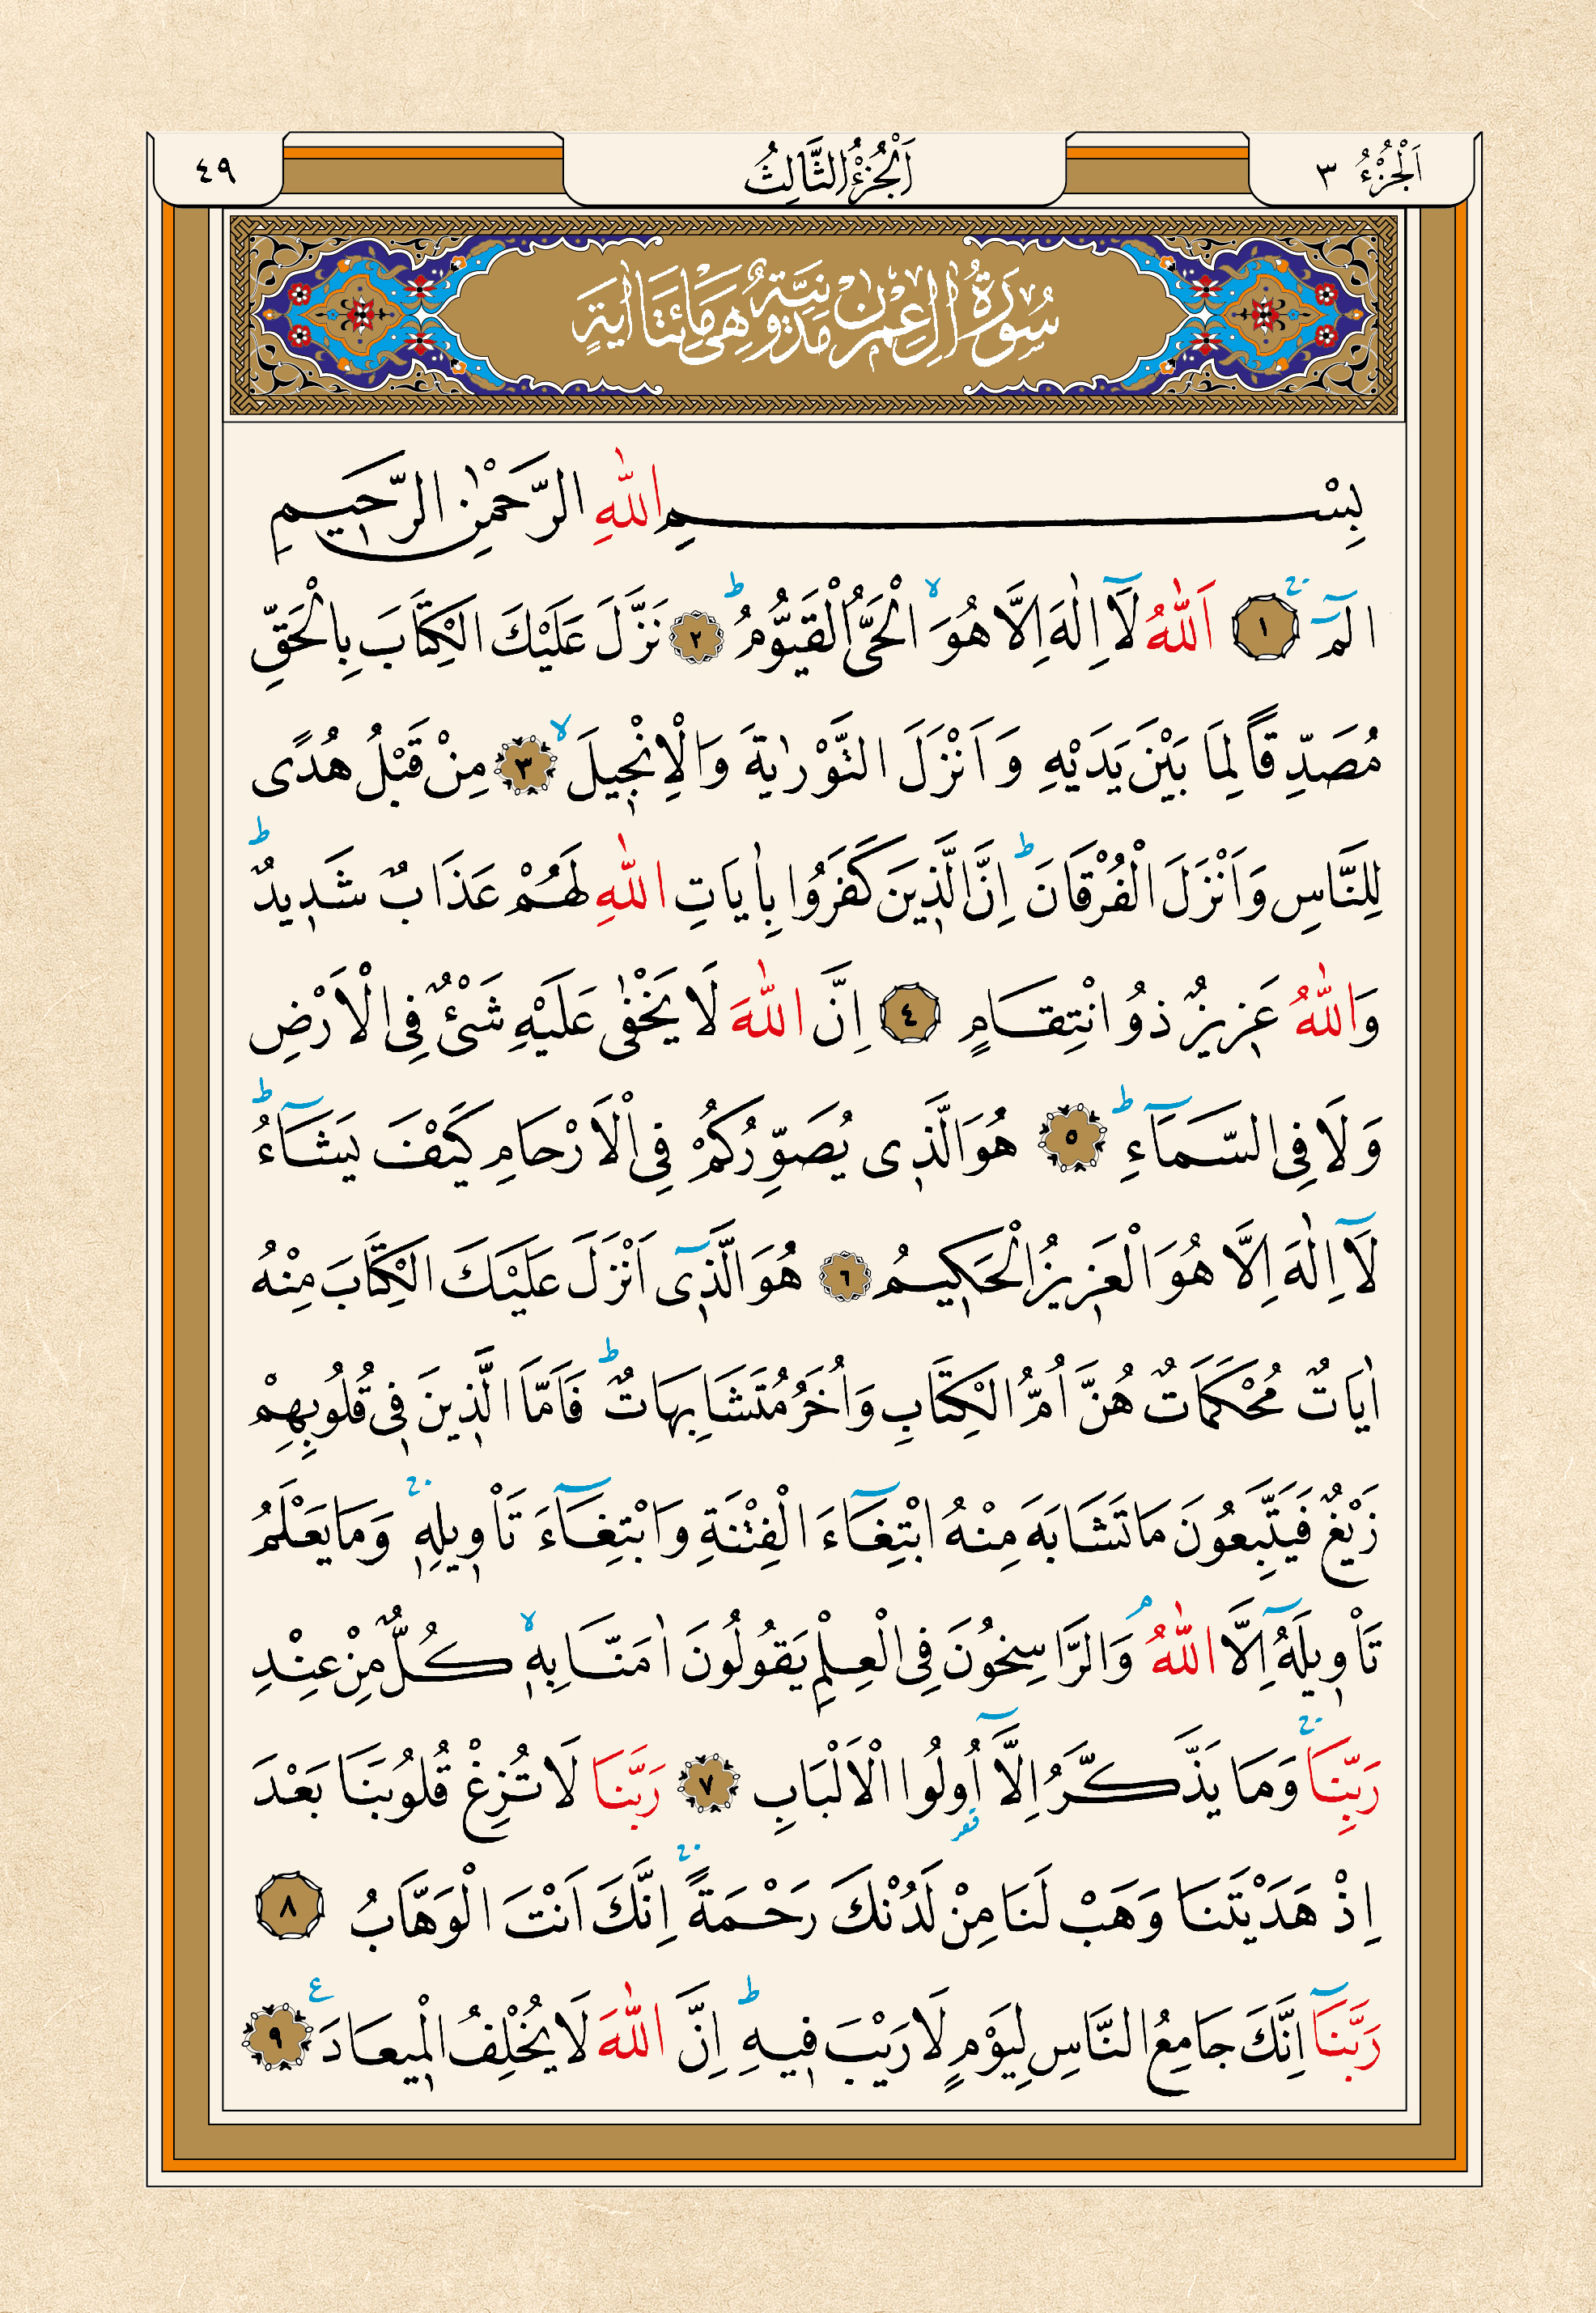 اَلْجُزْءُ ٣
اَلْجُزْءُ الثَّالِثُ
٤٩
سُورَةُ اٰلِ عِمْرٰنَ مَدَنِيَّةٌ وَهِيَ مِائَتَا اٰيَةٍ
بِسْمِ اللّٰهِ الرَّحْمٰنِ الرَّح۪يمِ
الٓمٓۚ ١ اَللّٰهُ لَٓا اِلٰهَ اِلَّا هُوَۙ الْحَيُّ الْقَيُّومُۜ ٢ نَزَّلَ عَلَيْكَ الْكِتَابَ بِالْحَقِّ
مُصَدِّقًا لِمَا بَيْنَ يَدَيْهِ وَاَنْزَلَ التَّوْرٰيةَ وَالْاِنْج۪يلَۙ ٣ مِنْ قَبْلُ هُدًى
لِلنَّاسِ وَاَنْزَلَ الْفُرْقَانَۜ اِنَّ الَّذ۪ينَ كَفَرُوا بِاٰيَاتِ اللّٰهِ لَهُمْ عَذَابٌ شَد۪يدٌۜ
وَاللّٰهُ عَز۪يزٌ ذُو انْتِقَامٍ ٤ اِنَّ اللّٰهَ لَا يَخْفٰى عَلَيْهِ شَيْءٌ فِي الْاَرْضِ
وَلَا فِي السَّمَٓاءِۜ ٥ هُوَ الَّذ۪ي يُصَوِّرُكُمْ فِي الْاَرْحَامِ كَيْفَ يَشَٓاءُۜ
لَٓا اِلٰهَ اِلَّا هُوَ الْعَز۪يزُ الْحَك۪يمُ ٦ هُوَ الَّذ۪ٓي اَنْزَلَ عَلَيْكَ الْكِتَابَ مِنْهُ
اٰيَاتٌ مُحْكَمَاتٌ هُنَّ اُمُّ الْكِتَابِ وَاُخَرُ مُتَشَابِهَاتٌۜ فَاَمَّا الَّذ۪ينَ ف۪ي قُلُوبِهِمْ
زَيْغٌ فَيَتَّبِعُونَ مَا تَشَابَهَ مِنْهُ ابْتِغَٓاءَ الْفِتْنَةِ وَابْتِغَٓاءَ تَأْو۪يلِه۪ۚ وَمَا يَعْلَمُ
تَأْو۪يلَهُٓ اِلَّا اللّٰهُۢ وَالرَّاسِخُونَ فِي الْعِلْمِ يَقُولُونَ اٰمَنَّا بِه۪ۙ كُلٌّ مِنْ عِنْدِ
رَبِّنَاۚ وَمَا يَذَّكَّرُ اِلَّٓا اُو۬لُوا الْاَلْبَابِ ٧ رَبَّنَا لَا تُزِغْ قُلُوبَنَا بَعْدَ
اِذْ هَدَيْتَنَا وَهَبْ لَنَا مِنْ لَدُنْكَ رَحْمَةًۚ اِنَّكَ اَنْتَ الْوَهَّابُ ٨
رَبَّنَٓا اِنَّكَ جَامِعُ النَّاسِ لِيَوْمٍ لَا رَيْبَ ف۪يهِۜ اِنَّ اللّٰهَ لَا يُخْلِفُ الْم۪يعَادَ۟ ٩